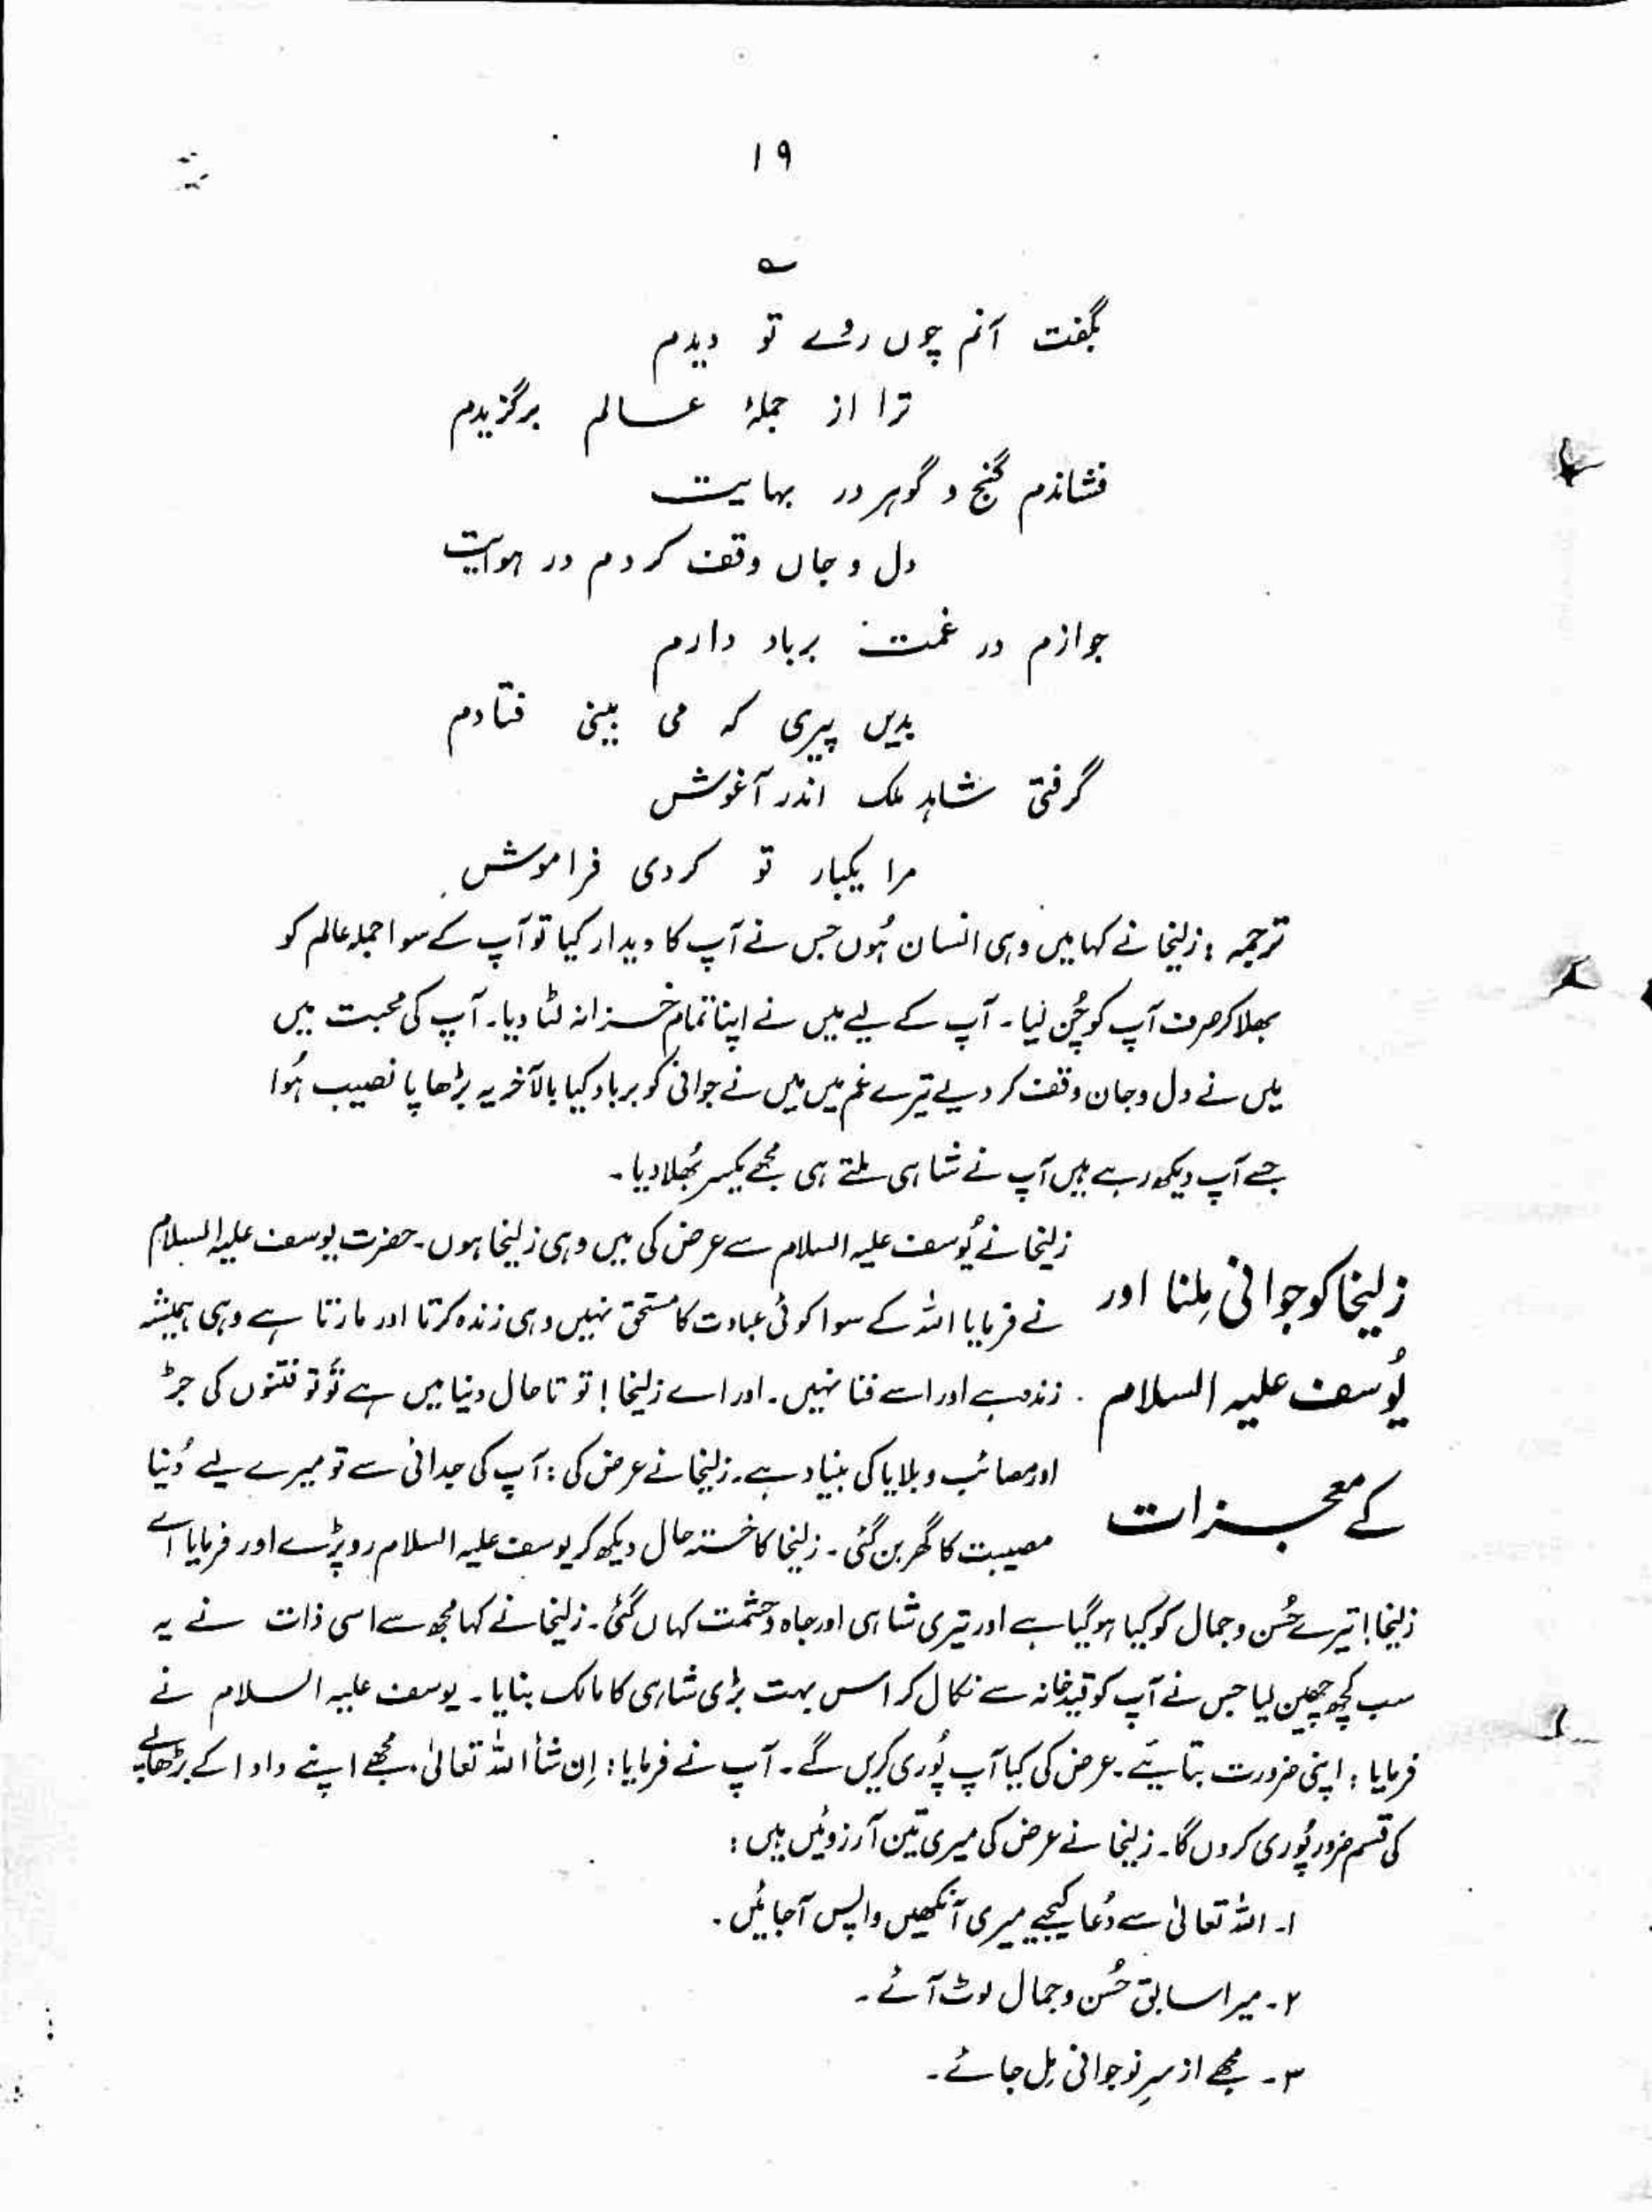 ۱۹
؎
بگفت آنم چوں روے تو دیدم
ترا از جملۂ عالم برگزیدم
فشاندم گنج و گوہر در بہایت
دل و جاں وقف کردم در ہوایت
جوازم در غمت برباد دارم
بدیں پیری کہ می بینی فتادم
گرفتی شاہد ملک اندر آغوش
مرا یکبار تو کردی فراموش
ترجمہ : زلیخا نے کہا میں وہی انسان ہُوں جس نے آپ کا دیدار کیا تو آپ کے سوا جملہ عالم کو
بھلا کر صرف آپ کو چُن لیا ۔ آپ کے لیے میں نے اپنا تمام خزانہ لٹا دیا۔ آپ کی محبت میں
میں نے دل و جان وقف کر دیے تیرے غم میں میں نے جوانی کو برباد کیا بالآخر یہ بڑھاپا نصیب ہُوا
جسے آپ دیکھ رہے ہیں آپ نے شاہی ملتے ہی مجھے یکسر بُھلا دیا ۔
زلیخا کو جوانی مِلنا اور
یُوسف علیہ السلام
کے معجزات
زلیخا نے یُوسف علیہ السلام سے عرض کی میں وہی زلیخا ہوں ۔ حضرت یوسف علیہ السلام
نے فرمایا اللہ کے سوا کوئی عبادت کا مستحق نہیں وہی زندہ کرتا اور مارتا ہے وہی ہمیشہ
زندہ ہے اور اسے فنا نہیں ۔ اور اے زلیخا ! تو تا حال دنیا میں ہے تُو تو فتنوں کی جڑ
اور مصائب و بلایا کی بنیاد ہے ۔ زلیخا نے عرض کی : آپ کی جدائی سے تو میرے لیے دُنیا
مصیبت کا گھر بن گئی ۔ زلیخا کا خستہ حال دیکھ کر یوسف علیہ السلام رو پڑے اور فرمایا اے
زلیخا ! تیرے حُسن و جمال کو کیا ہو گیا ہے اور تیری شاہی اور جاہ و حشمت کہاں گئی ۔ زلیخا نے کہا مجھ سے اسی ذات نے یہ
سب کچھ چھین لیا جس نے آپ کو قید خانہ سے نکال کر اس بہت بڑی شاہی کا مالک بنایا ۔ یوسف علیہ السلام نے
فرمایا : اپنی ضرورت بتائیے ۔ عرض کی کیا آپ پُوری کریں گے ۔ آپ نے فرمایا : اِن شأ اللہ تعالیٰ ۔ مجھے اپنے دادا کے بڑھاپے
کی قسم ضرور پُوری کروں گا ۔ زلیخا نے عرض کی میری تین آرزوئیں ہیں :
۱۔ اللہ تعالیٰ سے دُعا کیجیے میری آنکھیں واپس آجائیں ۔
۲۔ میرا سابق حُسن و جمال لوٹ آئے ۔
۳۔ مجھے از سرِ نو جوانی مِل جائے ۔